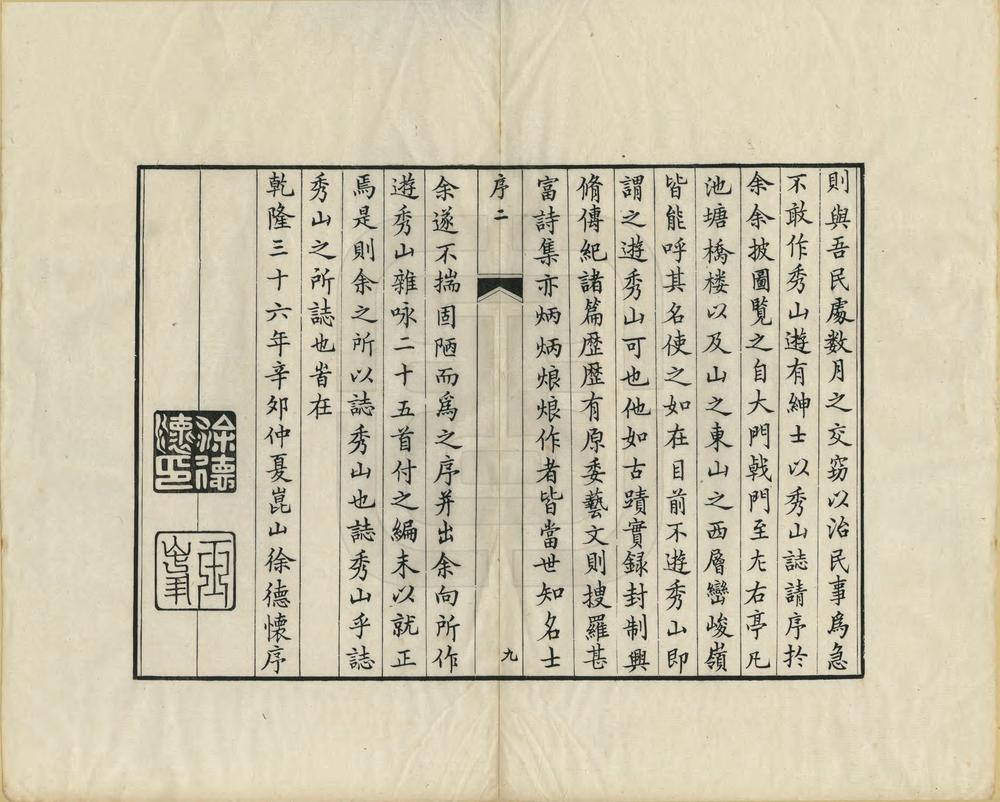 則與吾民處数月之交窃以治民事為急
不敢作秀山遊有紳士以秀山誌請序扵
余余披圖覽之自大門戟門至左右亭凡
池塘橋楼以及山之東山之西層巒峻嶺
皆能呼其名使之如在目前不遊秀山即
謂之遊秀山可也他如古蹟實録封制興
脩傳紀諸篇歴歴有原委藝文則搜羅甚
富詩集亦炳炳烺烺作者皆當世知名士
序二
九
余遂不揣固陋而為之序并出余向所作
遊秀山雜咏二十五首付之編末以就正
焉是則余之所以誌秀山也誌秀山乎誌
秀山之所誌也旹在
乾隆三十六年辛夘仲夏崑山徐德懷序
徐德懷印